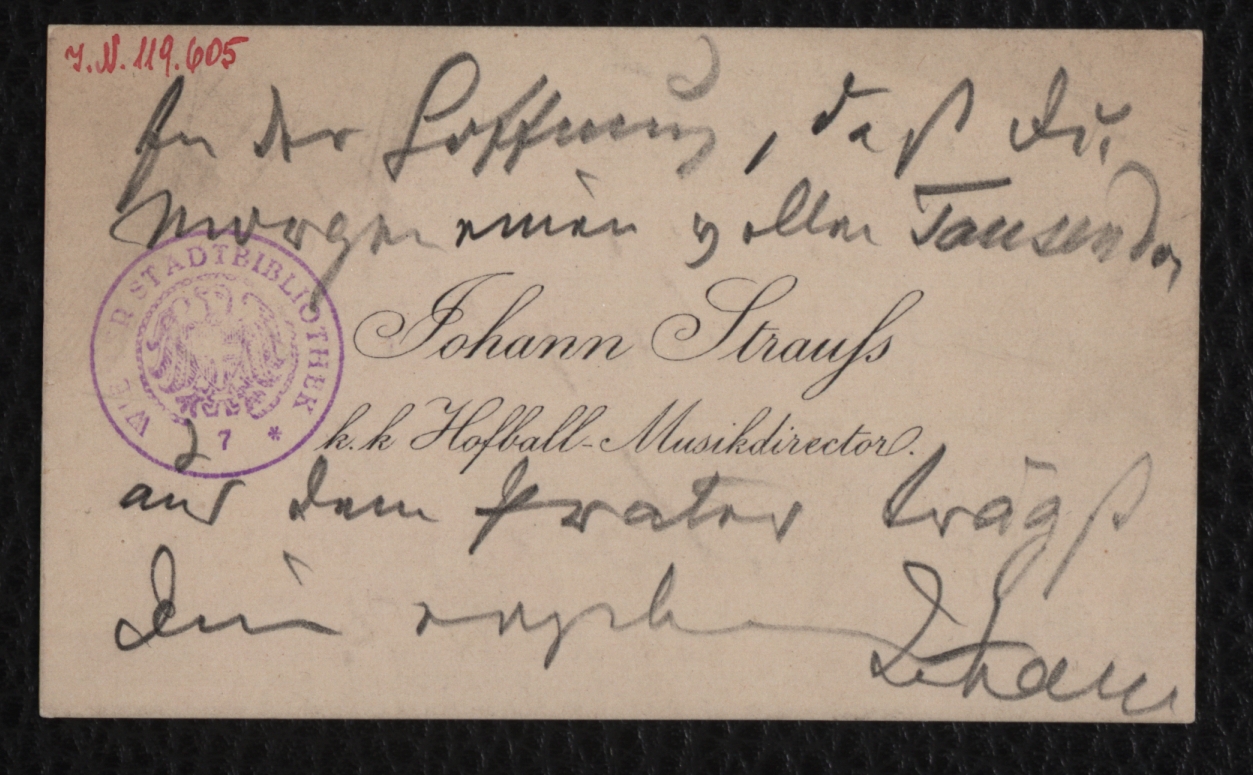 J.N. 119.605
In der Hoffnung, daß Du
morgen einen vollen Tausender
WIENER STADTBIBLIOTHEK
7 *
Johann Strauſs
k.k Hofball-Musikdirector.
aus dem Prater trägst
Dein ergebener